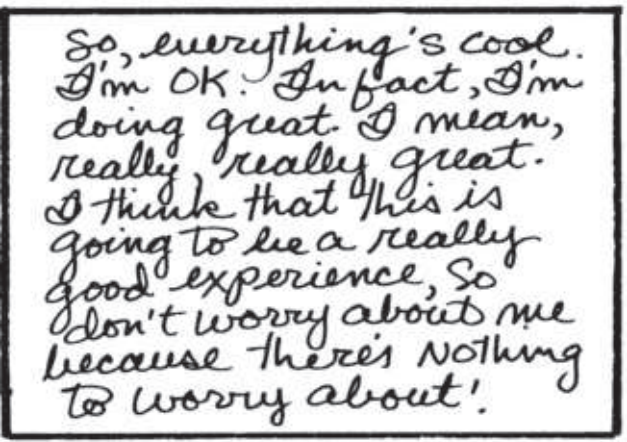 So, everything's cool.
I'm OK. In fact, I'm
doing great. I mean,
really, really great.
I think that this is
going to be a really
good experience, So
don't worry about me
because there's Nothing
to worry about!